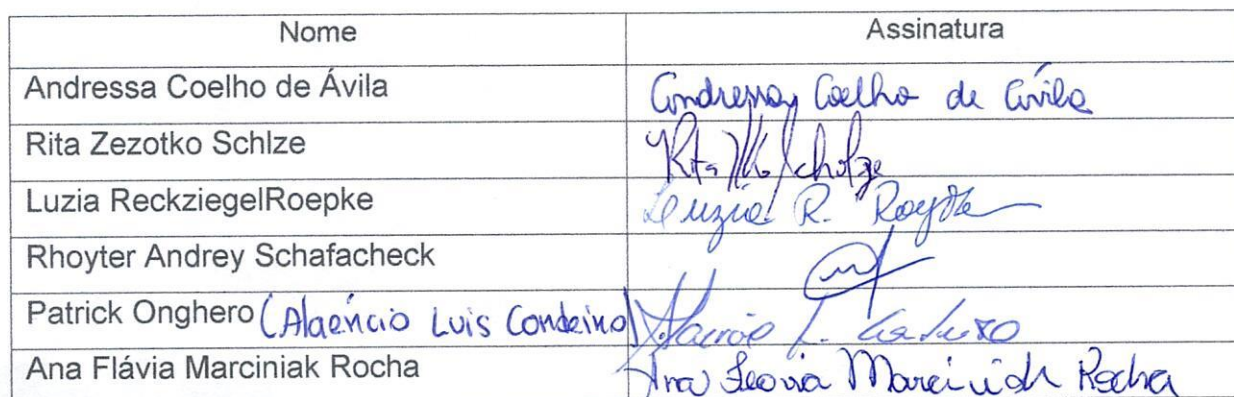 Nome Assinatura
Andressa Coelho de Ávila Andressa Coelho de Ávila
Rita Zezotko Schlze Rita Scholze
Luzia ReckziegelRoepke Luzia R. Roepke
Rhoyter Andrey Schafacheck
Patrick Onghero (Alaéncio Luis Condeiro) L.
Ana Flávia Marciniak Rocha Ana Flavia Marciniak Rocha